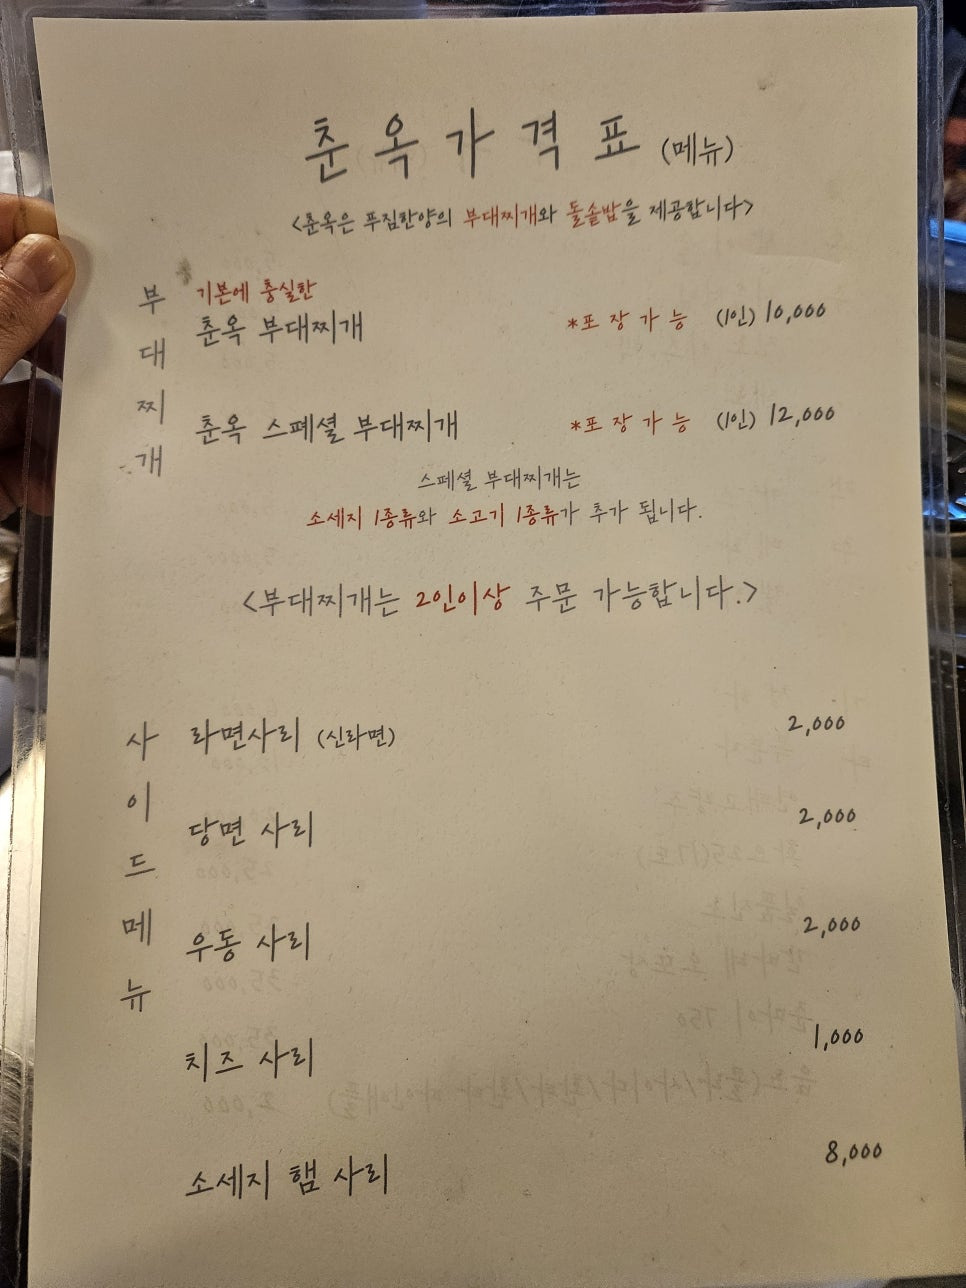 춘옥가격표 (메뉴)
<춘옥은 푸짐한양의 부대찌개와 돌솥밥을 제공합니다>
부대찌개
기본에 충실한
춘옥 부대찌개 *포장가능 (1인) 10,000
춘옥 스페셜 부대찌개 *포장가능 (1인) 12,000
스페셜 부대찌개는
소세지 1종류와 소고기 1종류가 추가 됩니다.
<부대찌개는 2인이상 주문 가능합니다.>
사이드메뉴
라면사리 (신라면) 2,000
당면 사리 2,000
우동 사리 2,000
치즈 사리 1,000
소세지 햄 사리 8,000